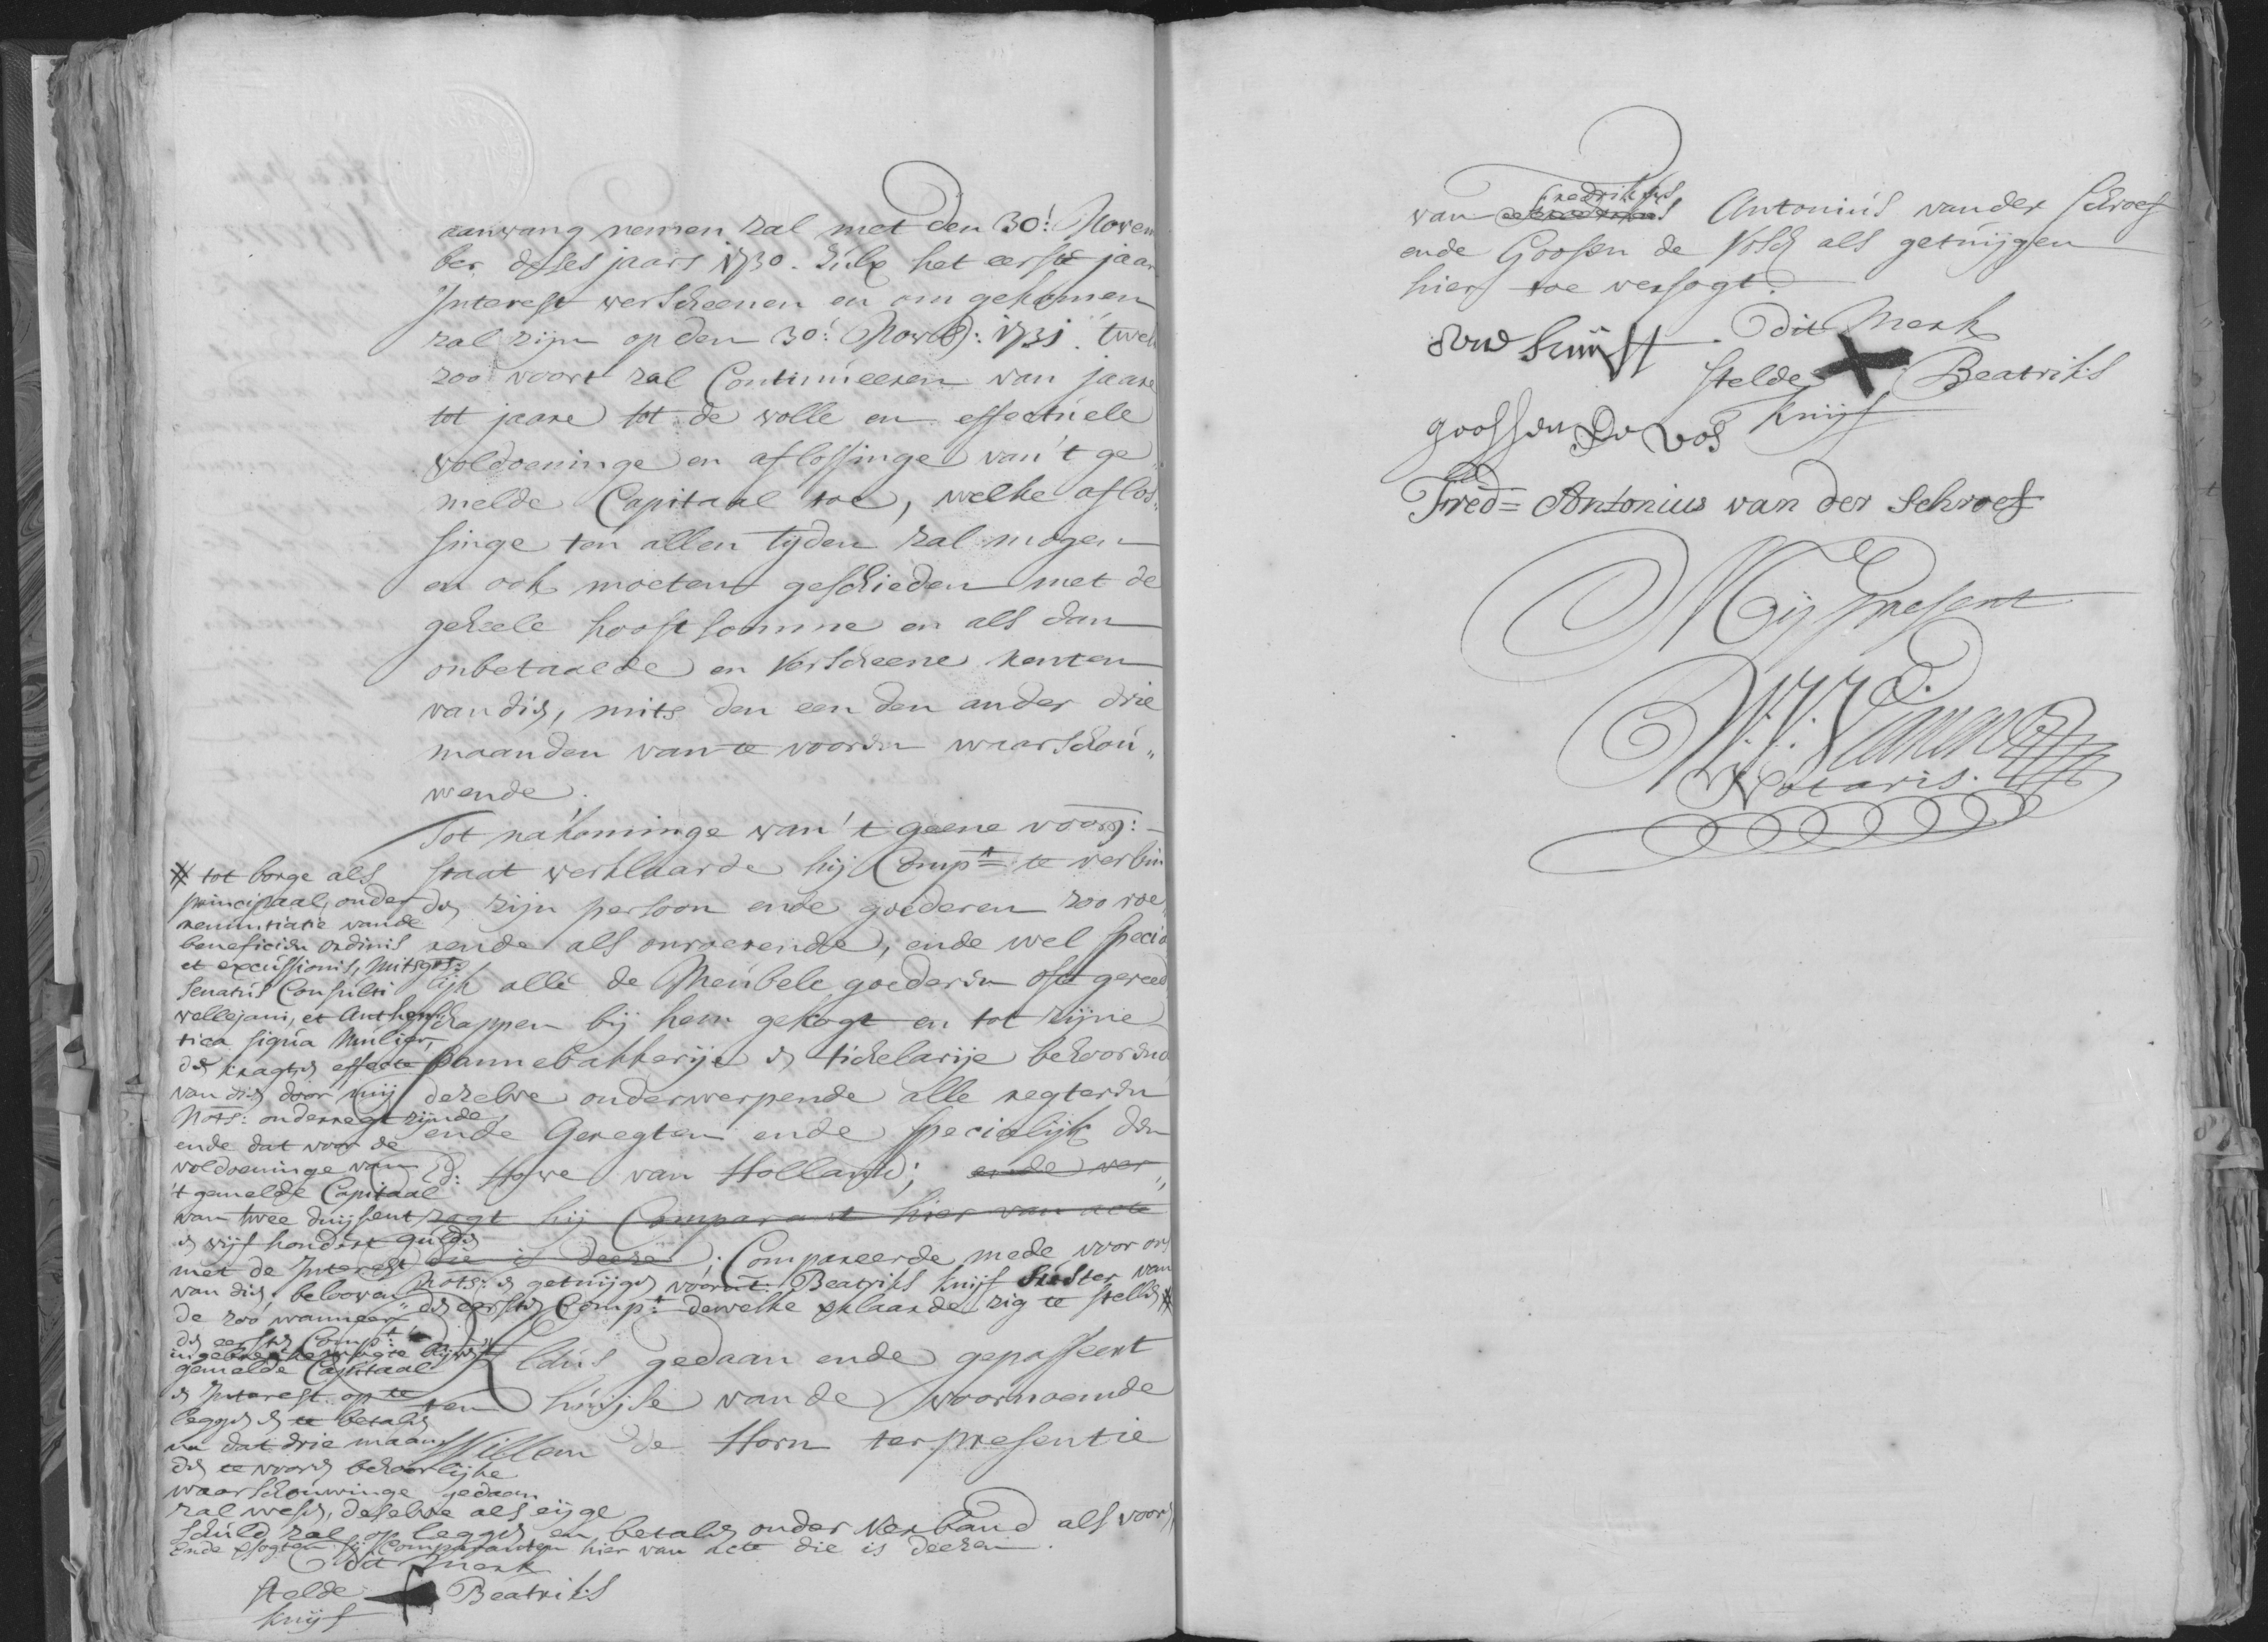 aanvang nemen zal met den 30: Novem
ber deses jaars 1730. Zulx het eerste jaar
Interest verscheenen en om gekomen
zal zijn op den 30: Novb: 1731. twelk
zoo voort zal Continueeren van jaare
tot jaare tot de volle en effectuele
voldoeninge en aflossinge van't ge„
melde Capitaal toe, welke aflos„
singe ten allen tyden zal mogen
en ook moeten geschieden met de
geheele hooft somme en als dan
onbetaalde en verscheene renten
van dien, mits den een den ander drie
maanden van te vooren waarschou„
wende.
Tot nakominge van't geene voorsz:
staat verklaarde hij Compt: te verbin
den zijn persoon ende goederen zoo roe„
rende als onroerende, ende wel specia
lijk alle de Meubele goederen ofte gereed
schappen bij hem gekogt en tot zijne
Pannebakkerije en tichelarije behoorende
dezelve onderwerpende alle regteren
ende Geregten ende specialijk den
Ed: Hove van Holland; ende ver„
zogt hij Comparant hier van acte
die is deeze. Compareerde mede voor ons
Nots: en getuijgen voornt: Beatriks Knijf Suster van
den eersten Compt: dewelke verklaarde zig te stellen #
# tot borge als
principaal, onder
renuntiatie vande
beneficien ordinis
et excussionis, mitsgrs:
Senatus Consulti
vellejani, et Authen„
tica siqua Mulier,
de kragt en effecte
van dien door mij
Nots: onderregt zijnde
ende dat voor de
voldoeninge van
't gemelde Capitaal
van twee duijsent
en vijf hondert gulden
met de Interest
van dien beloovende
de zoo wanneer
den eersten Compt:
gemelde Capitaal
en Interest op te
leggen en te betalen
na dat drie maan
den te voorn behoorlijke
waarschouwinge gedaan
zal wesen, deselve als eijge
schuld zal op leggen en betalen onder verband als voorn
Ende versogten sij Comparanten hier van acte die is deezen.
Aldus gedaan ende gepasseert
ten huijse van de voornoemde
Willem de Horn ter presentie
dit merk
stelde Beatriks
Knijf
van Fredrikus Antonius vander Schroef
ende Goosen de Vosch als getuijgen
hier toe versogt.
dit Merk
stelde Beatriks
Knijf
goossen De Vos
Fred= Antonius van der Schroef
Mij Present
Notaris.